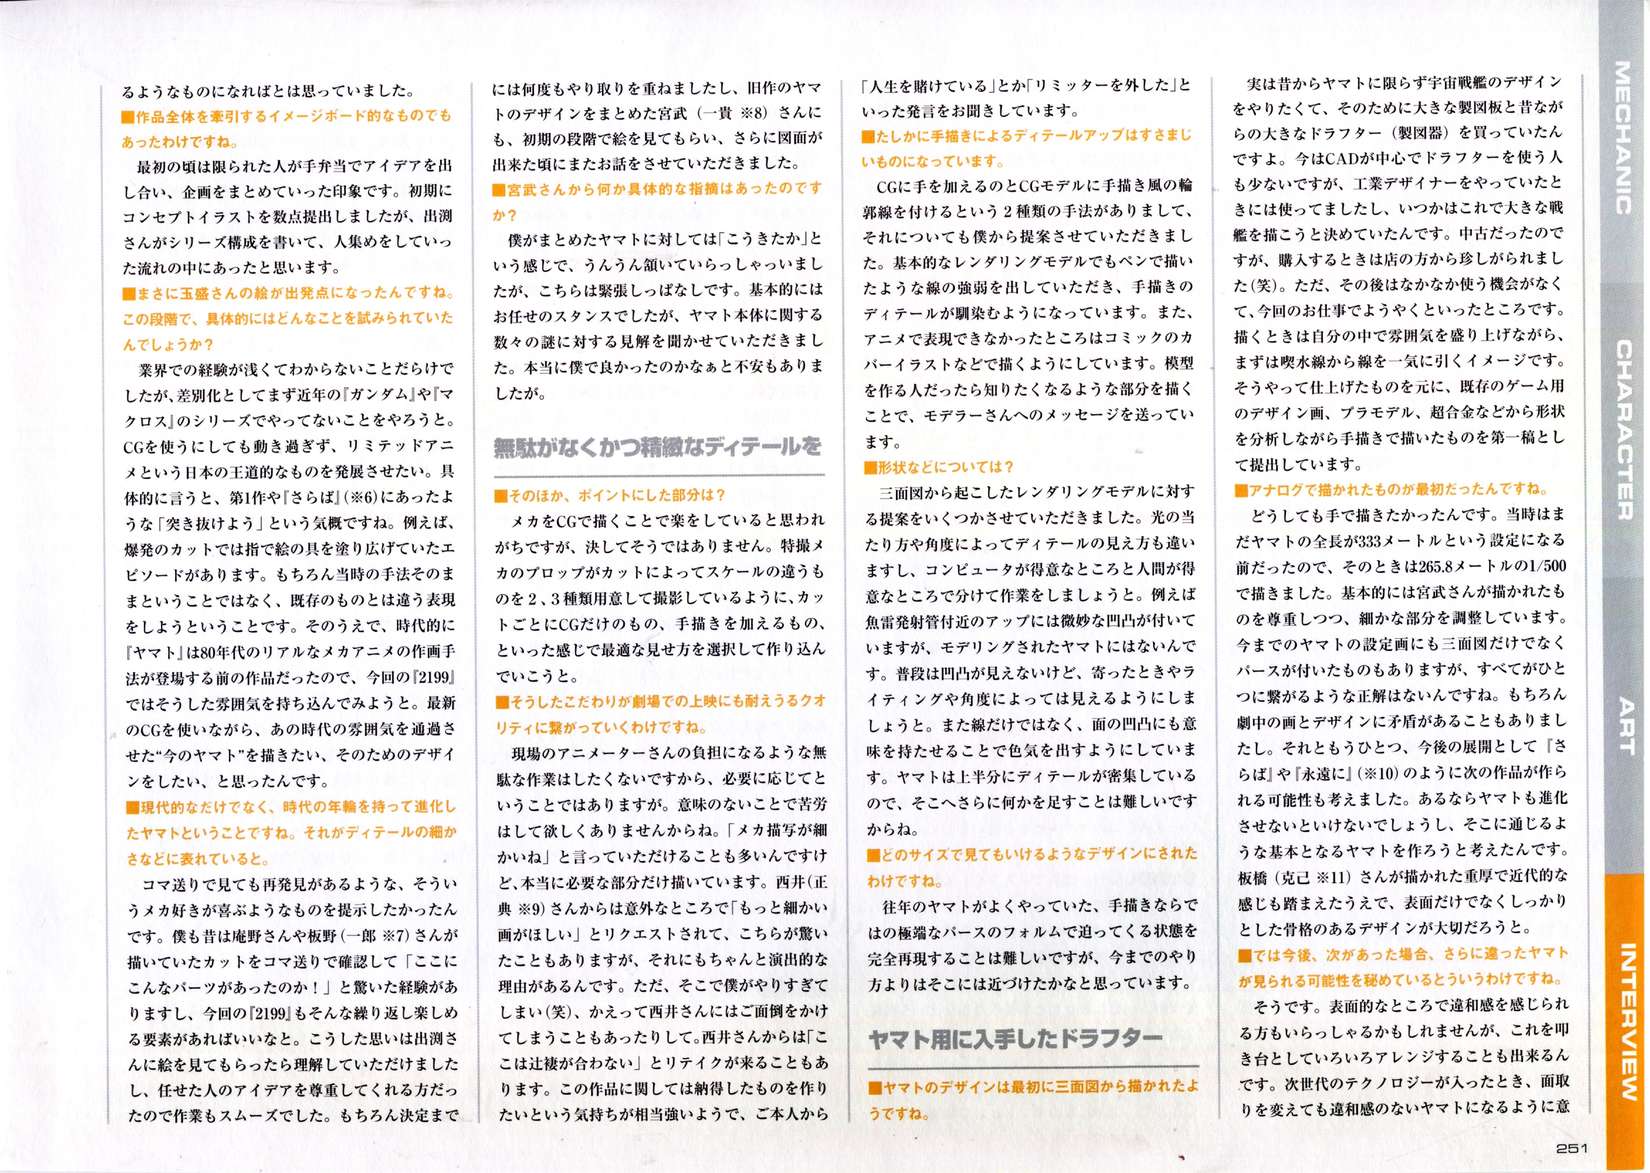 るようなものになればとは思っていました。
■作品全体を牽引するイメージボード的なものでも
あったわけですね。
最初の頃は限られた人が手弁当でアイデアを出
し合い、企画をまとめていった印象です。初期に
コンセプトイラストを数点提出しましたが、出渕
さんがシリーズ構成を書いて、人集めをしていっ
た流れの中にあったと思います。
■まさに玉盛さんの絵が出発点になったんですね。
この段階で、具体的にはどんなことを試みられていた
んでしょうか？
業界での経験が浅くてわからないことだらけで
したが、差別化としてまず近年の『ガンダム』や『マ
クロス』のシリーズでやってないことをやろうと。
CGを使うにしても動き過ぎず、リミテッドアニ
メという日本の王道的なものを発展させたい。具
体的に言うと、第1作や『さらば』（※6）にあったよ
うな「突き抜けよう」という気概ですね。例えば、
爆発のカットでは指で絵の具を塗り広げていたエ
ピソードがあります。もちろん当時の手法そのま
まということではなく、既存のものとは違う表現
をしようということです。そのうえで、時代的に
『ヤマト』は80年代のリアルなメカアニメの作画手
法が登場する前の作品だったので、今回の『2199』
ではそうした雰囲気を持ち込んでみようと。最新
のCGを使いながら、あの時代の雰囲気を通過さ
せた“今のヤマト”を描きたい、そのためのデザイ
ンをしたい、と思ったんです。
■現代的なだけでなく、時代の年輪を持って進化し
たヤマトということですね。それがディテールの細か
さなどに表れていると。
コマ送りで見ても再発見があるような、そうい
うメカ好きが喜ぶようなものを提示したかったん
です。僕も昔は庵野さんや板野（一郎 ※7）さんが
描いていたカットをコマ送りで確認して「ここに
こんなパーツがあったのか！」と驚いた経験があ
りますし、今回の『2199』もそんな繰り返し楽しめ
る要素があればいいなと。こうした思いは出渕さ
んに絵を見てもらったら理解していただけました
し、任せた人のアイデアを尊重してくれる方だっ
たので作業もスムーズでした。もちろん決定まで
には何度もやり取りを重ねましたし、旧作のヤマ
トのデザインをまとめた宮武（一貴 ※8）さんに
も、初期の段階で絵を見てもらい、さらに図面が
出来た頃にまたお話をさせていただきました。
■宮武さんから何か具体的な指摘はあったのです
か？
僕がまとめたヤマトに対しては「こうきたか」と
いう感じで、うんうん頷いていらっしゃっいまし
たが、こちらは緊張しっぱなしです。基本的には
お任せのスタンスでしたが、ヤマト本体に関する
数々の謎に対する見解を聞かせていただきまし
た。本当に僕で良かったのかなぁと不安もありま
したが。
無駄がなくかつ精緻なディテールを
■そのほか、ポイントにした部分は？
メカをCGで描くことで楽をしていると思われ
がちですが、決してそうではありません。特撮メ
カのプロップがカットによってスケールの違うも
のを２、３種類用意して撮影しているように、カッ
トごとにCGだけのもの、手描きを加えるもの、
といった感じで最適な見せ方を選択して作り込ん
でいこうと。
■そうしたこだわりが劇場での上映にも耐えうるクオ
リティに繋がっていくわけですね。
現場のアニメーターさんの負担になるような無
駄な作業はしたくないですから、必要に応じてと
いうことではありますが。意味のないことで苦労
はして欲しくありませんからね。「メカ描写が細
かいね」と言っていただけることも多いんですけ
ど、本当に必要な部分だけ描いています。西井（正
典 ※9）さんからは意外なところで「もっと細かい
画がほしい」とリクエストされて、こちらが驚い
たこともありますが、それにもちゃんと演出的な
理由があるんです。ただ、そこで僕がやりすぎて
しまい（笑）、かえって西井さんにはご面倒をかけ
てしまうこともあったりして。西井さんからは「こ
こは辻褄が合わない」とリテイクが来ることもあ
ります。この作品に関しては納得したものを作り
たいという気持ちが相当強いようで、ご本人から
「人生を賭けている」とか「リミッターを外した」と
いった発言をお聞きしています。
■たしかに手描きによるディテールアップはすさまじ
いものになっています。
CGに手を加えるのとCGモデルに手描き風の輪
郭線を付けるという２種類の手法がありまして、
それについても僕から提案させていただきまし
た。基本的なレンダリングモデルでもペンで描い
たような線の強弱を出していただき、手描きの
ディテールが馴染むようになっています。また、
アニメで表現できなかったところはコミックのカ
バーイラストなどで描くようにしています。模型
を作る人だったら知りたくなるような部分を描く
ことで、モデラーさんへのメッセージを送ってい
ます。
■形状などについては？
三面図から起こしたレンダリングモデルに対す
る提案をいくつかさせていただきました。光の当
たり方や角度によってディテールの見え方も違い
ますし、コンピュータが得意なところと人間が得
意なところで分けて作業をしましょうと。例えば
魚雷発射管付近のアップには微妙な凹凸が付いて
いますが、モデリングされたヤマトにはないんで
す。普段は凹凸が見えないけど、寄ったときやラ
イティングや角度によっては見えるようにしま
しょうと。また線だけではなく、面の凹凸にも意
味を持たせることで色気を出すようにしていま
す。ヤマトは上半分にディテールが密集している
ので、そこへさらに何かを足すことは難しいです
からね。
■どのサイズで見てもいけるようなデザインにされた
わけですね。
往年のヤマトがよくやっていた、手描きならで
はの極端なパースのフォルムで迫ってくる状態を
完全再現することは難しいですが、今までのやり
方よりはそこには近づけたかなと思っています。
ヤマト用に入手したドラフター
■ヤマトのデザインは最初に三面図から描かれたよ
うですね。
実は昔からヤマトに限らず宇宙戦艦のデザイン
をやりたくて、そのために大きな製図板と昔なが
らの大きなドラフター（製図器）を買っていたん
ですよ。今はCADが中心でドラフターを使う人
も少ないですが、工業デザイナーをやっていたと
きには使ってましたし、いつかはこれで大きな戦
艦を描こうと決めていたんです。中古だったので
すが、購入するときは店の方から珍しがられまし
た（笑）。ただ、その後はなかなか使う機会がなく
て、今回のお仕事でようやくといったところです。
描くときは自分の中で雰囲気を盛り上げながら、
まずは喫水線から線を一気に引くイメージです。
そうやって仕上げたものを元に、既存のゲーム用
のデザイン画、プラモデル、超合金などから形状
を分析しながら手描きで描いたものを第一稿とし
て提出しています。
■アナログで描かれたものが最初だったんですね。
どうしても手で描きたかったんです。当時はま
だヤマトの全長が333メートルという設定になる
前だったので、そのときは265.8メートルの1/500
で描きました。基本的には宮武さんが描かれたも
のを尊重しつつ、細かな部分を調整しています。
今までのヤマトの設定画にも三面図だけでなく
パースが付いたものもありますが、すべてがひと
つに繋がるような正解はないんですね。もちろん
劇中の画とデザインに矛盾があることもありまし
たし。それともうひとつ、今後の展開として『さ
らば』や『永遠に』（※10）のように次の作品が作ら
れる可能性も考えました。あるならヤマトも進化
させないといけないでしょうし、そこに通じるよ
うな基本となるヤマトを作ろうと考えたんです。
板橋（克己 ※11）さんが描かれた重厚で近代的な
感じも踏まえたうえで、表面だけでなくしっかり
とした骨格のあるデザインが大切だろうと。
■では今後、次があった場合、さらに違ったヤマト
が見られる可能性を秘めているとういうわけですね。
そうです。表面的なところで違和感を感じられ
る方もいらっしゃるかもしれませんが、これを叩
き台としていろいろアレンジすることも出来るん
です。次世代のテクノロジーが入ったとき、面取
りを変えても違和感のないヤマトになるように意
MECHANIC
CHARACTER
ART
INTERVIEW
251